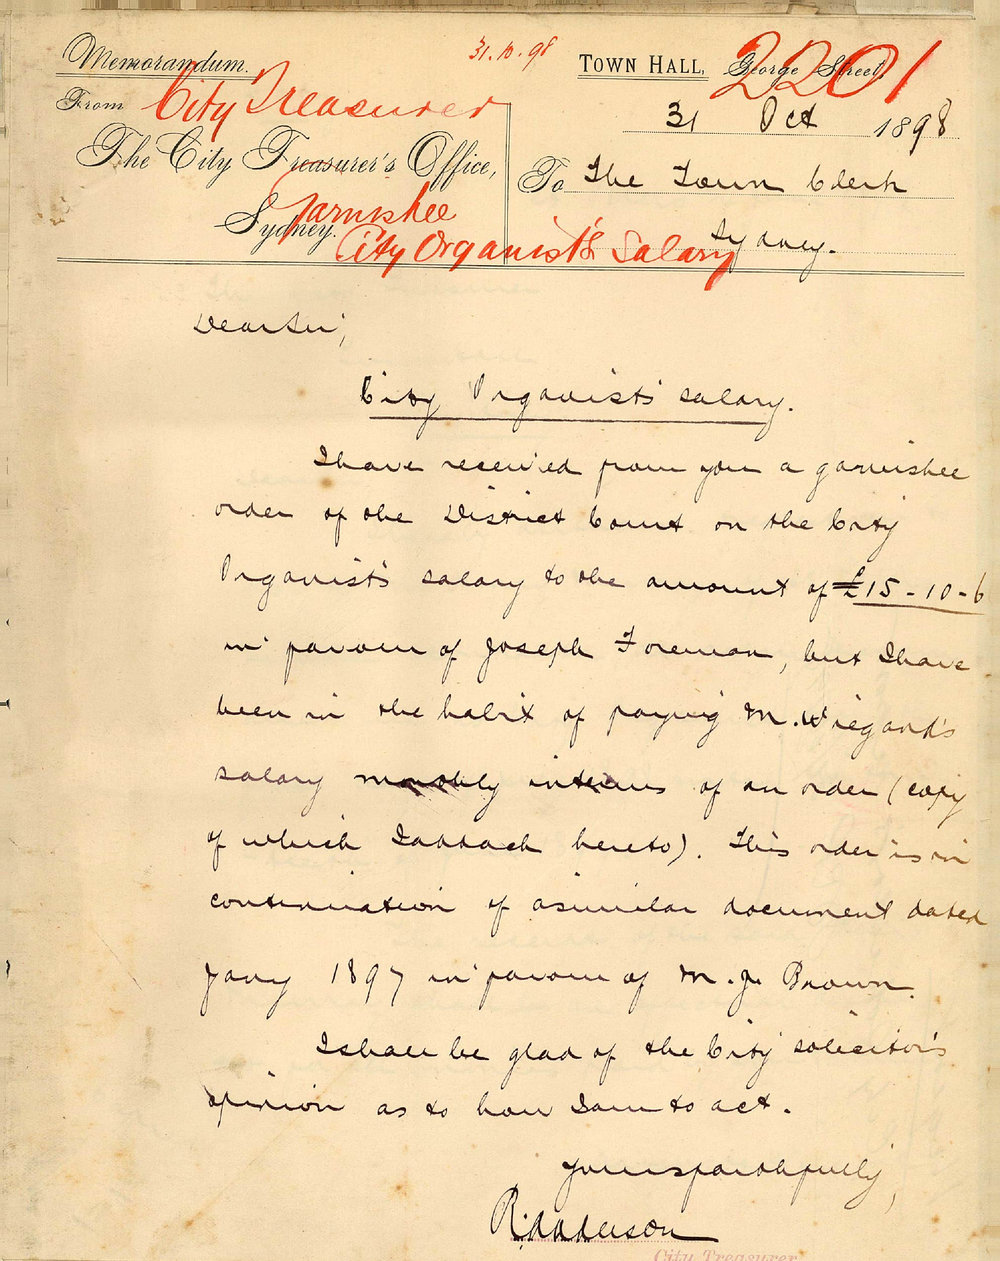 Memorandum.
31.10.98
TOWN HALL, George Street,
2201
From City Treasurer
31 Oct 1898
The City Treasurer's Office,
To The Town Clerk
Sydney.
Garnishee
City Organist's Salary
Sydney.
Dear Sir,
City Organist's salary.
I have received from you a garnishee
order of the District Court on the City
Organist's salary to the amount of £15-10-6
in favour of Joseph Foreman, but I have
been in the habit of paying M. Wiegand's
salary monthly in terms of an order (copy
of which I attach hereto). This order is in
continuation of a similar document dated
Jany 1897 in favour of M. J. Brown.
I shall be glad of the City Solicitor's
opinion as to how I am to act.
Yours faithfully,
City Treasurer